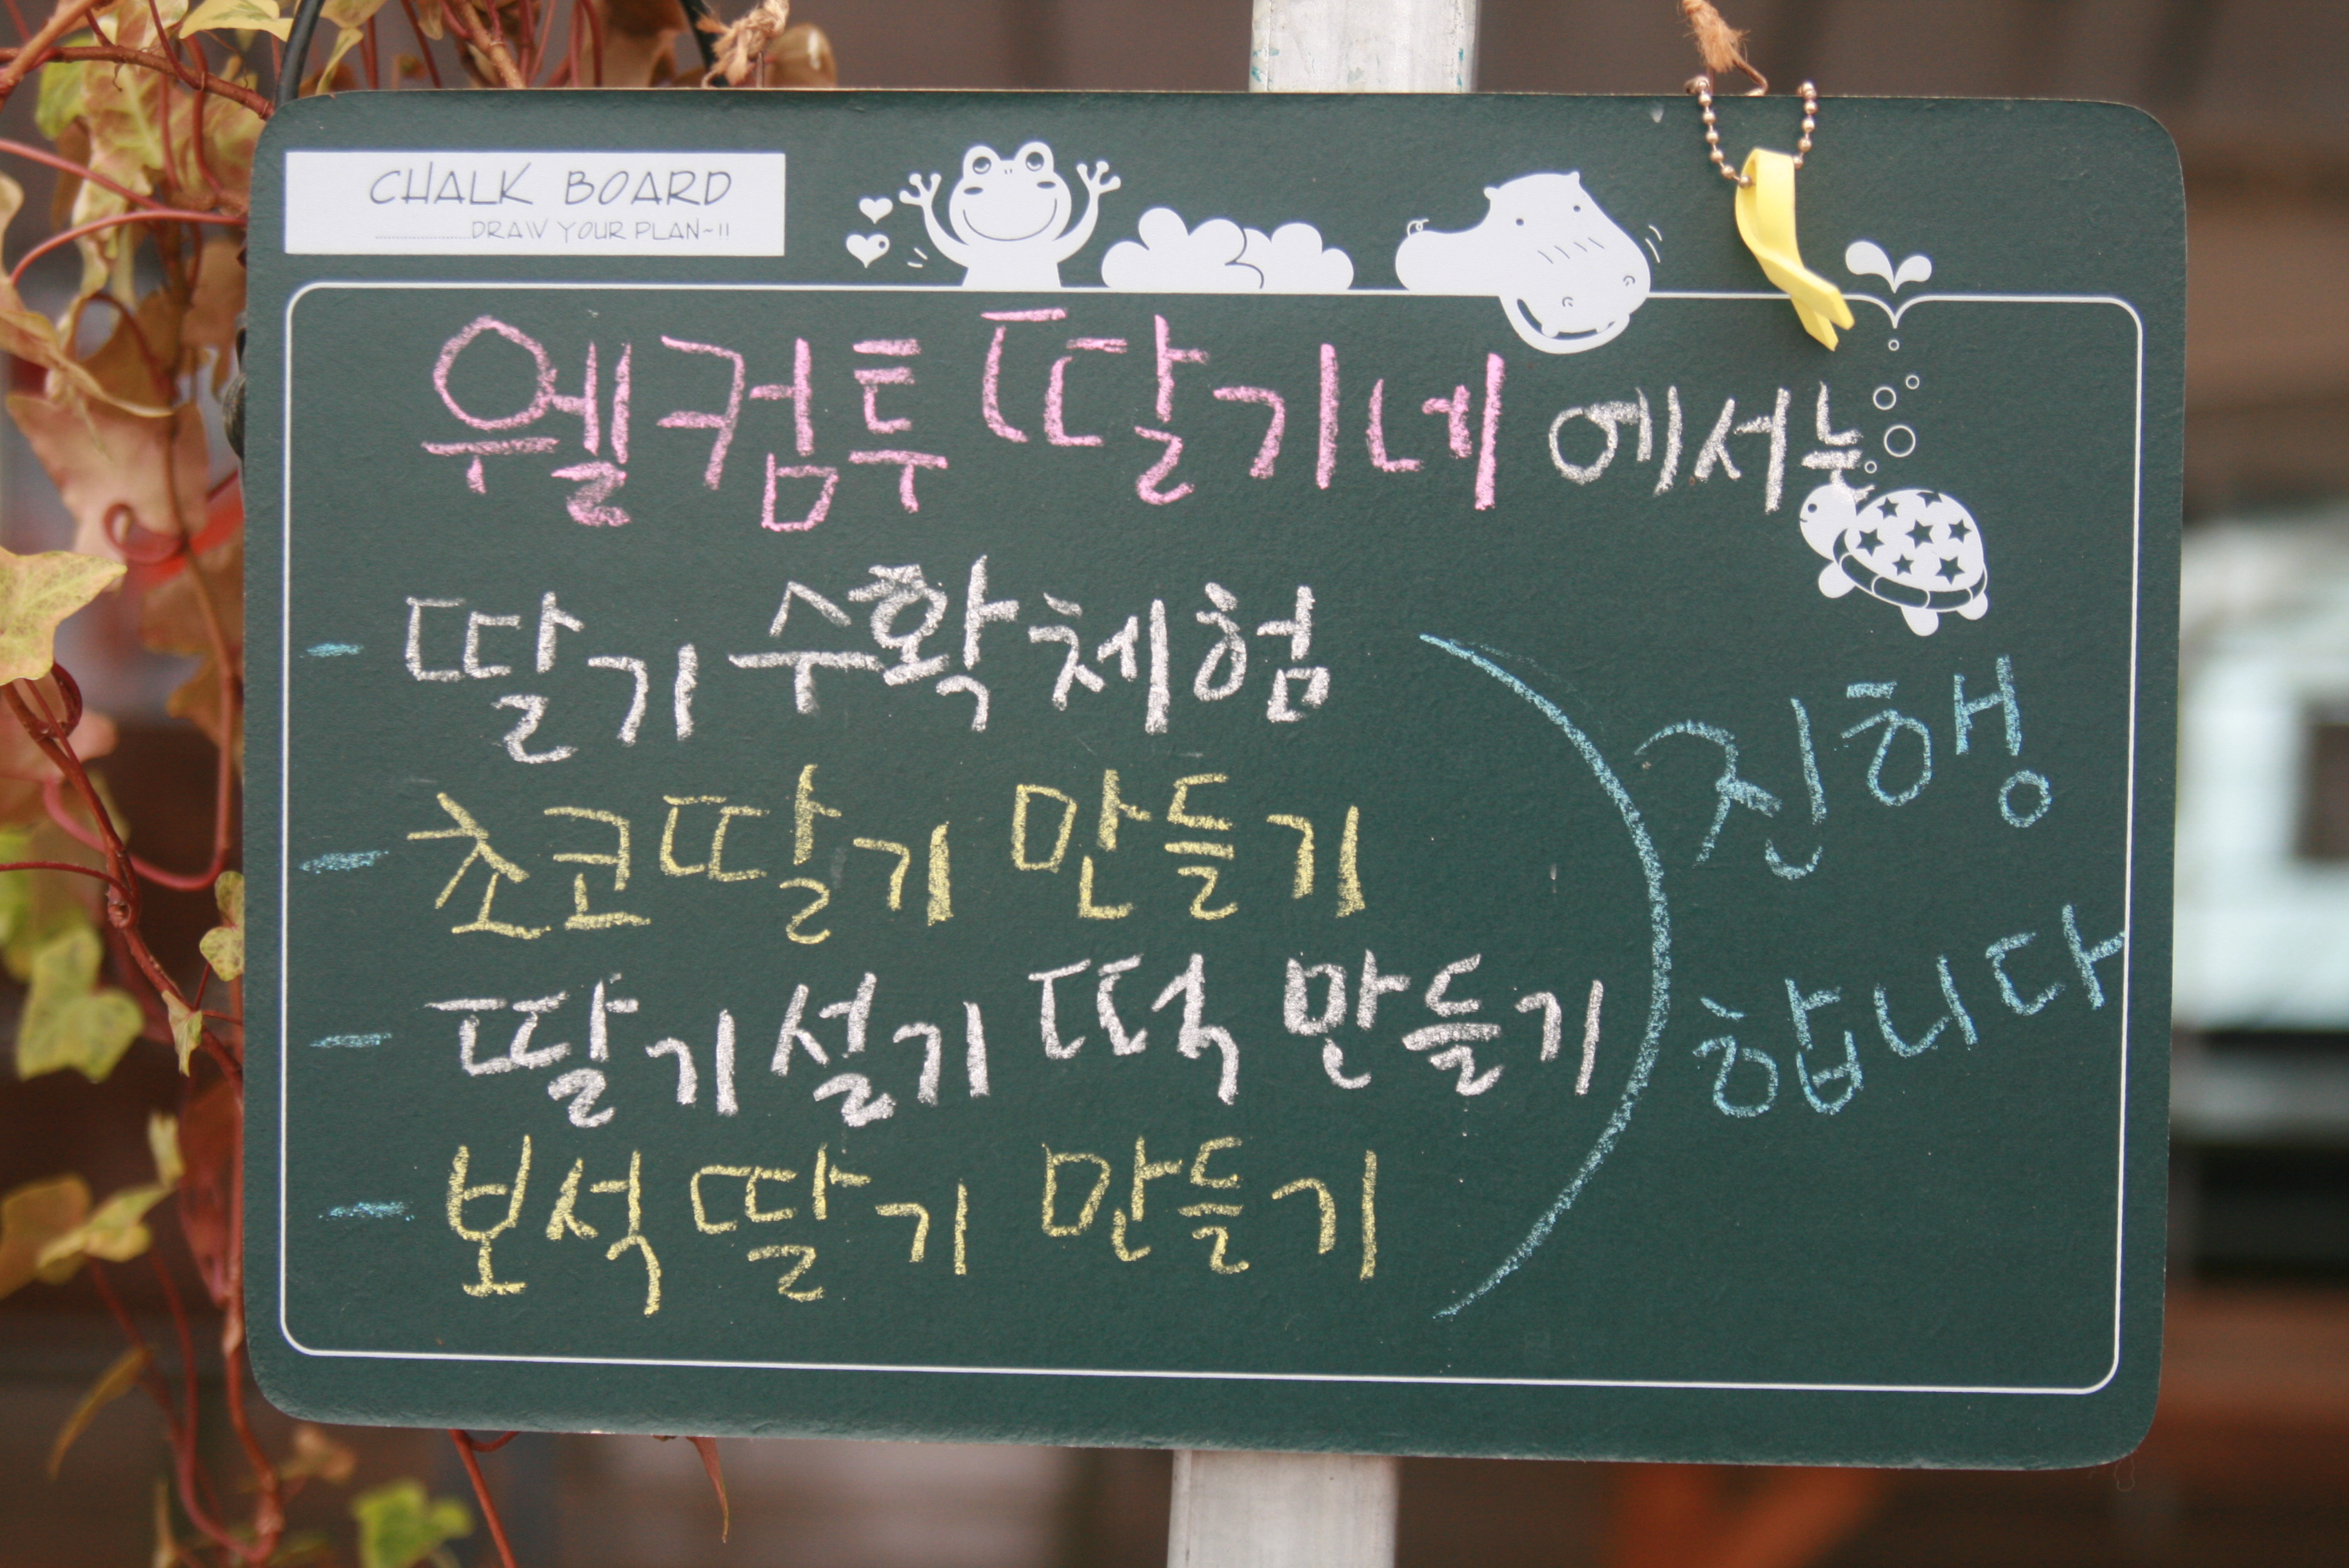 CHALK BOARD
DRAW YOUR PLAN~!!
웰컴투 딸기네 에서는
- 딸기 수확 체험
- 초코딸기 만들기
- 딸기설기 떡 만들기
- 보석딸기 만들기
진행
합니다